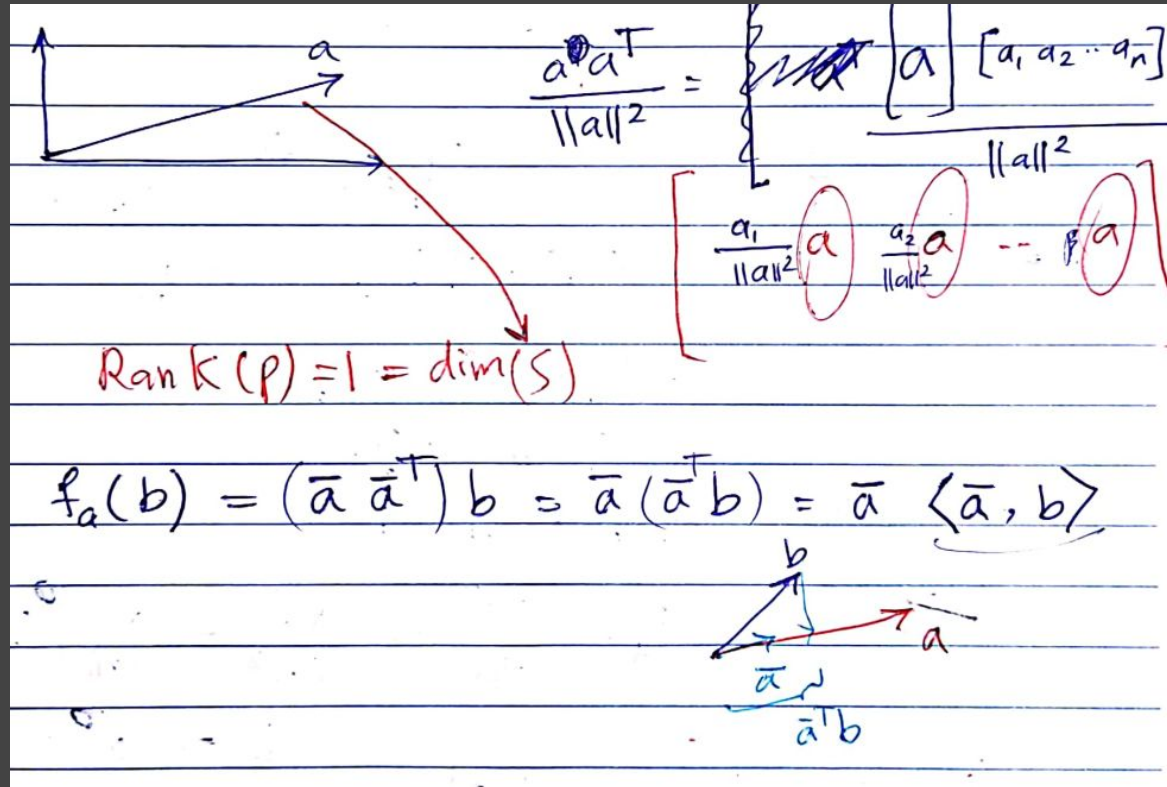 a
a aᵀ / ||a||² = [a] [a₁ a₂ ·· aₙ] / ||a||²
[ a₁/||a||² a a₂/||a||² a -- a ]
Rank(P) = 1 = dim(S)
fₐ(b) = (ā āᵀ) b = ā (āᵀ b) = ā ⟨ā, b⟩
b
a
ā
āᵀb